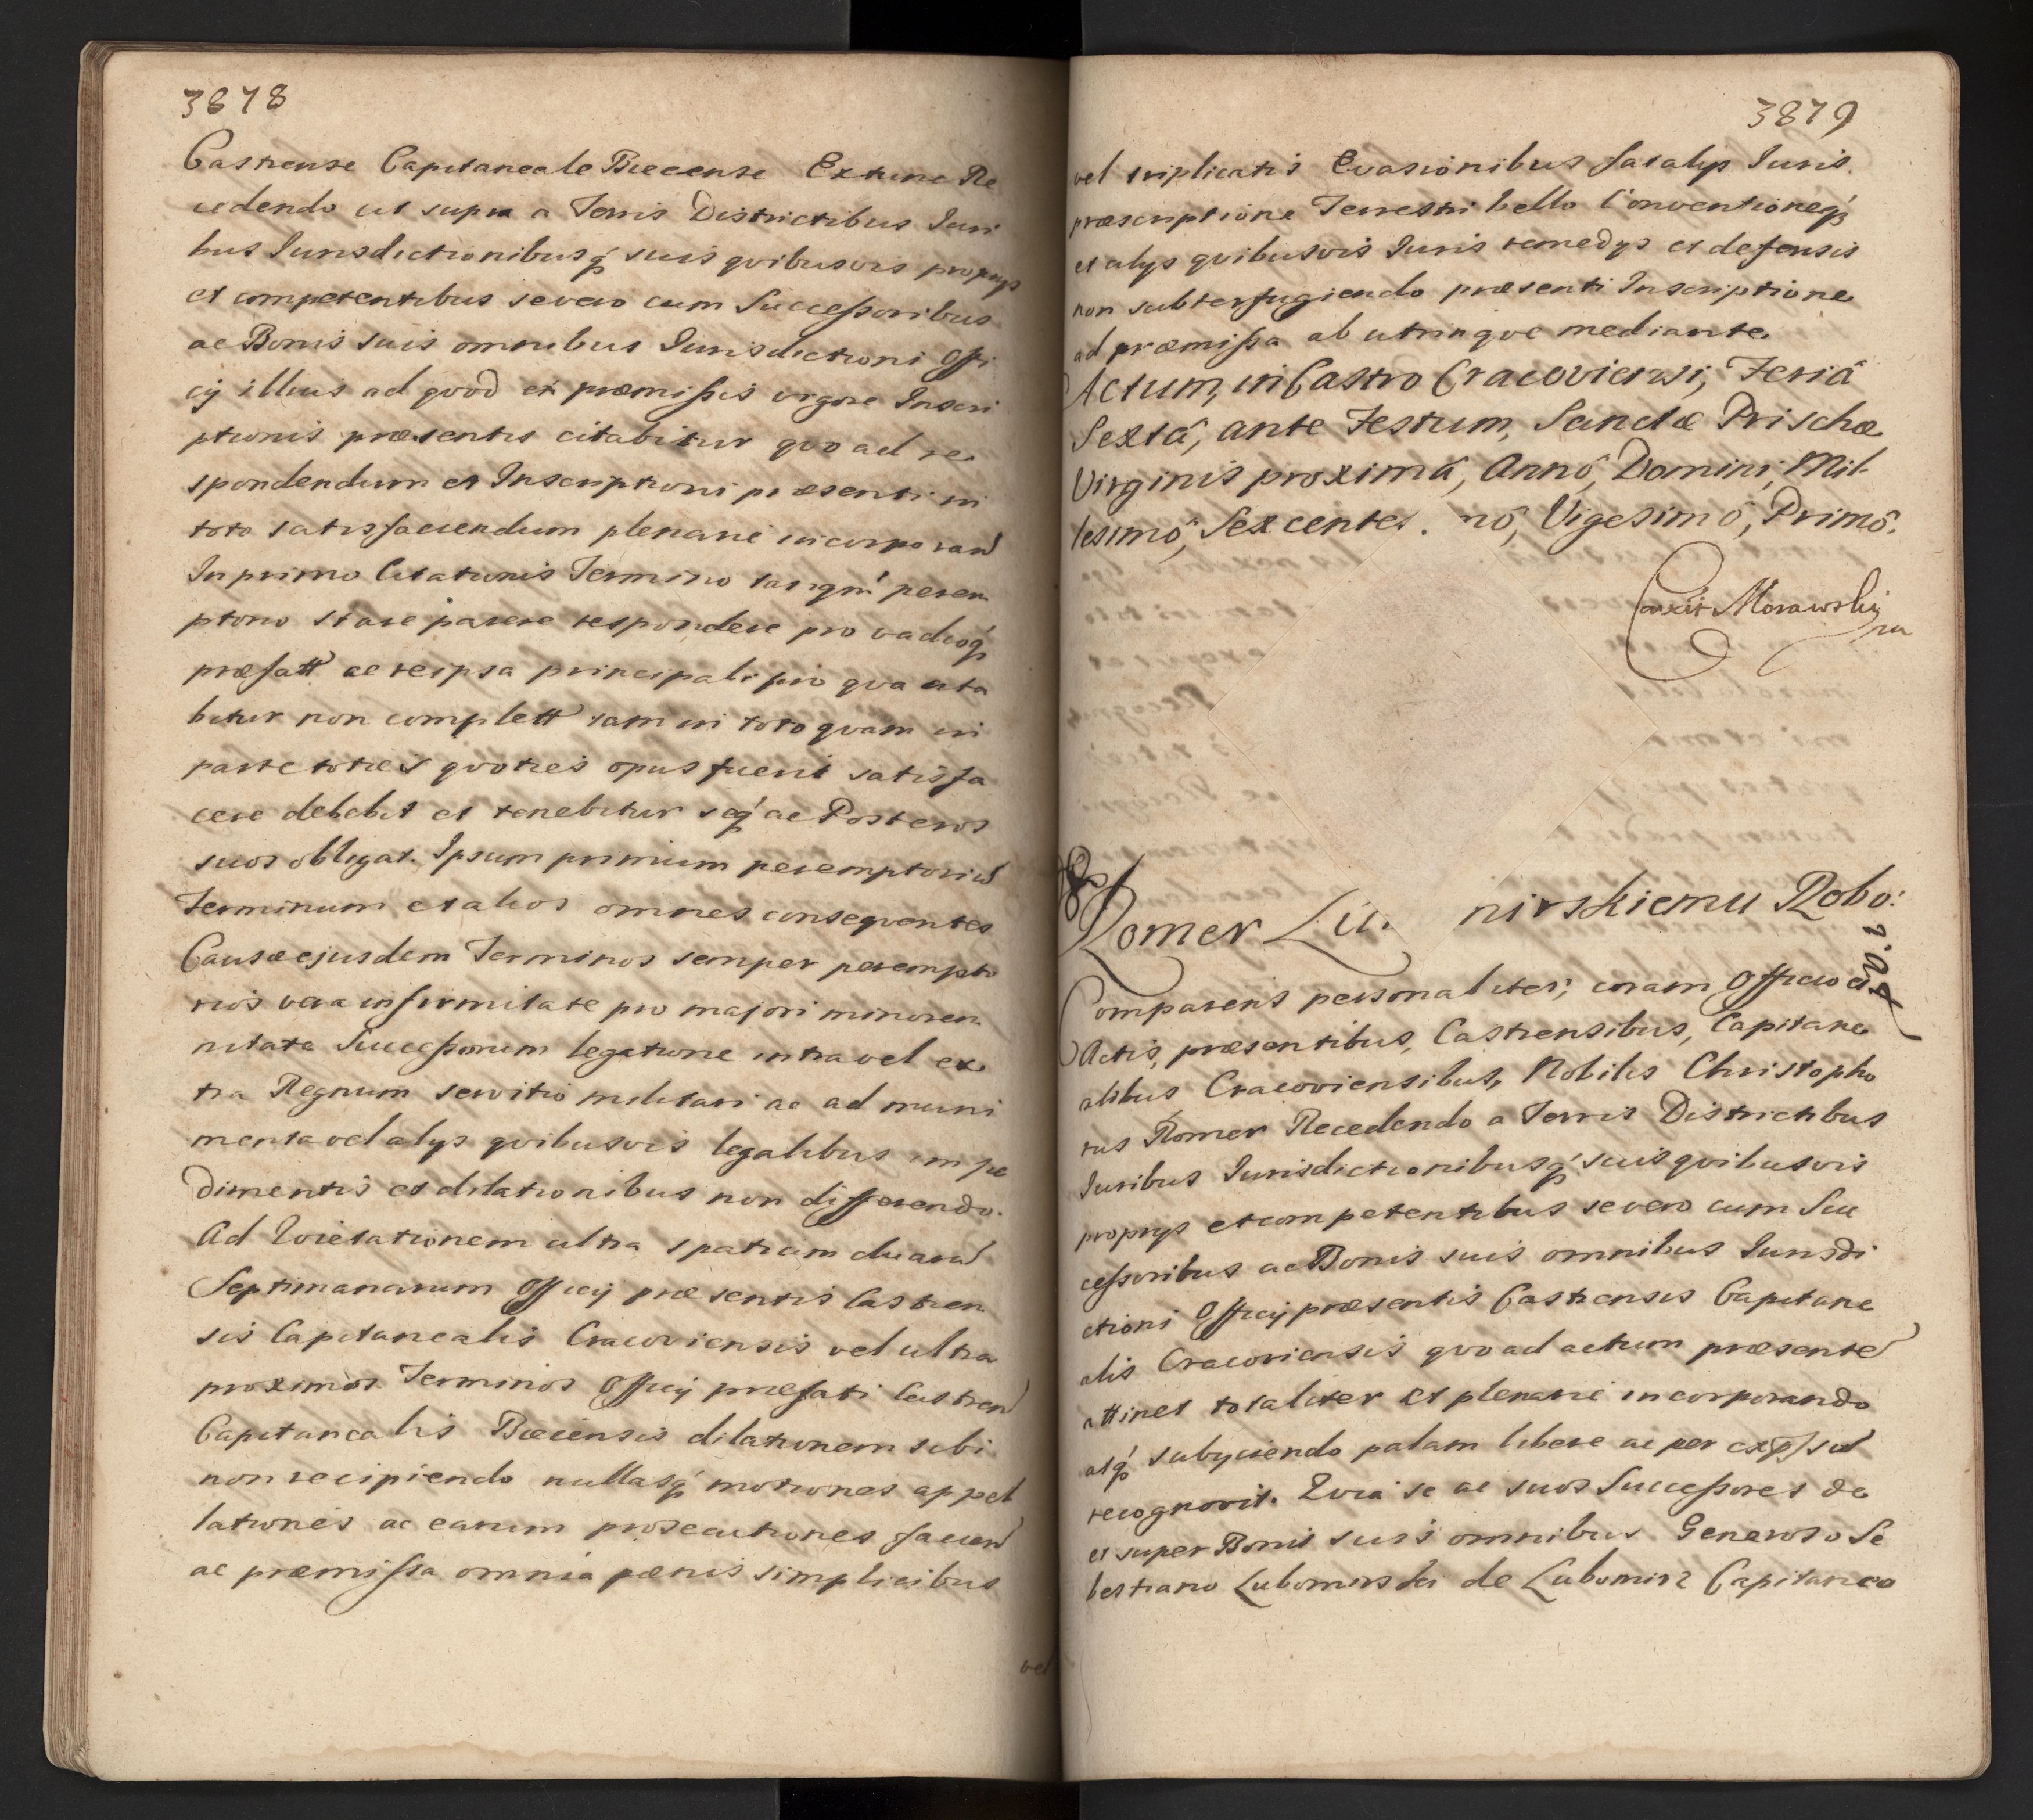 3878
Castrense Capitaneale Biecense Extunc Re
cedendo ut supra a Terris Districtibus Juri
bus Jurisdictionibusq́ suis qvibusvis proprys
et competentibus severo cum Successoribus
ac Bonis suis omnibus Jurisdictioni Offi
cij illius ad qvod ex præmissis vigore Inscri
ptionis præsentis citabitur qvo ad re
spondendum et Inscriptioni præsenti in
toto satisfaciendum plenarie incorporand
In primo Citationis Termino tanqm̃ perem
ptorio stare parere respondere pro vadioq́
præfatt ac re ipsa principali pro qva cita
bitur non complett tam in toto qvam in
parte toties qvoties opus fuerit satisfa
cere debebit et tenebitur seq́ ac Posteros
suos obligat. Ipsum primum peremptoriu
Terminum et alios omnes conseqventes
Causæ ejusdem Terminos semper perempto
rios vera infirmitate pro majori minoren
nitate Successorum legatione intra vel ex
tra Regnum servitio militari ac ad muni
menta vel alys qvibusvis legalibus impe
dimentis et dilationibus non differendo.
Ad Qvietationem ultra spatium duaru
Septimanarum Officij præsentis Castren
sis Capitanealis Cracoviensis vel ultra
proximos Terminos Officij præfati Castren
Capitanealis Biecensis dilationem sibi
non recipiendo nullasq́ motiones appel
lationes ac earum prosecutiones faciend
ac præmissa omnia pænis simplicibus
vel
3879
vel triplicatis Evasionibus fatalys Juris.
præscriptione Terrestri bello Conventioneq́
et alys qvibusvis Juris remedys et defensis
non subterfugiendo præsenti Inscriptione
ad præmissa ab utrinqve mediante.
Actum, in Castro Cracoviensi, Feriâ
Sextâ, ante Festum, Sanctæ Prischæ
Virginis proximâ, Annô, Domini, Mil-
lesimô, Sexcente. nô, Vigesimô, Primô.
Correxit Morawskij
Romer Lu. mirskiemu Robo:
Comparens personaliter; coram Officio et
Actis, præsentibus, Castrensibus, Capitane
alibus Cracoviensibus, Nobilis Christopho
rus Romer Recedendo a Terris Districtibus
Juribus Jurisdictionibusq́ suis qvibusvis
proprys et competentibus severo cum Suc
cessoribus ac Bonis suis omnibus Jurisdi
ctioni Officij præsentis Castrensis Capitane
alis Cracoviensis qvo ad actum præsente
attinet totaliter et plenarie incorporando
atq́ subyciendo palam libere ac per expssu
recognovit. Qvia se ac suos Successores de
et super Bonis suis omnibus Generoso Se
bestiano Lubomirski de Lubomirz Capitaneo